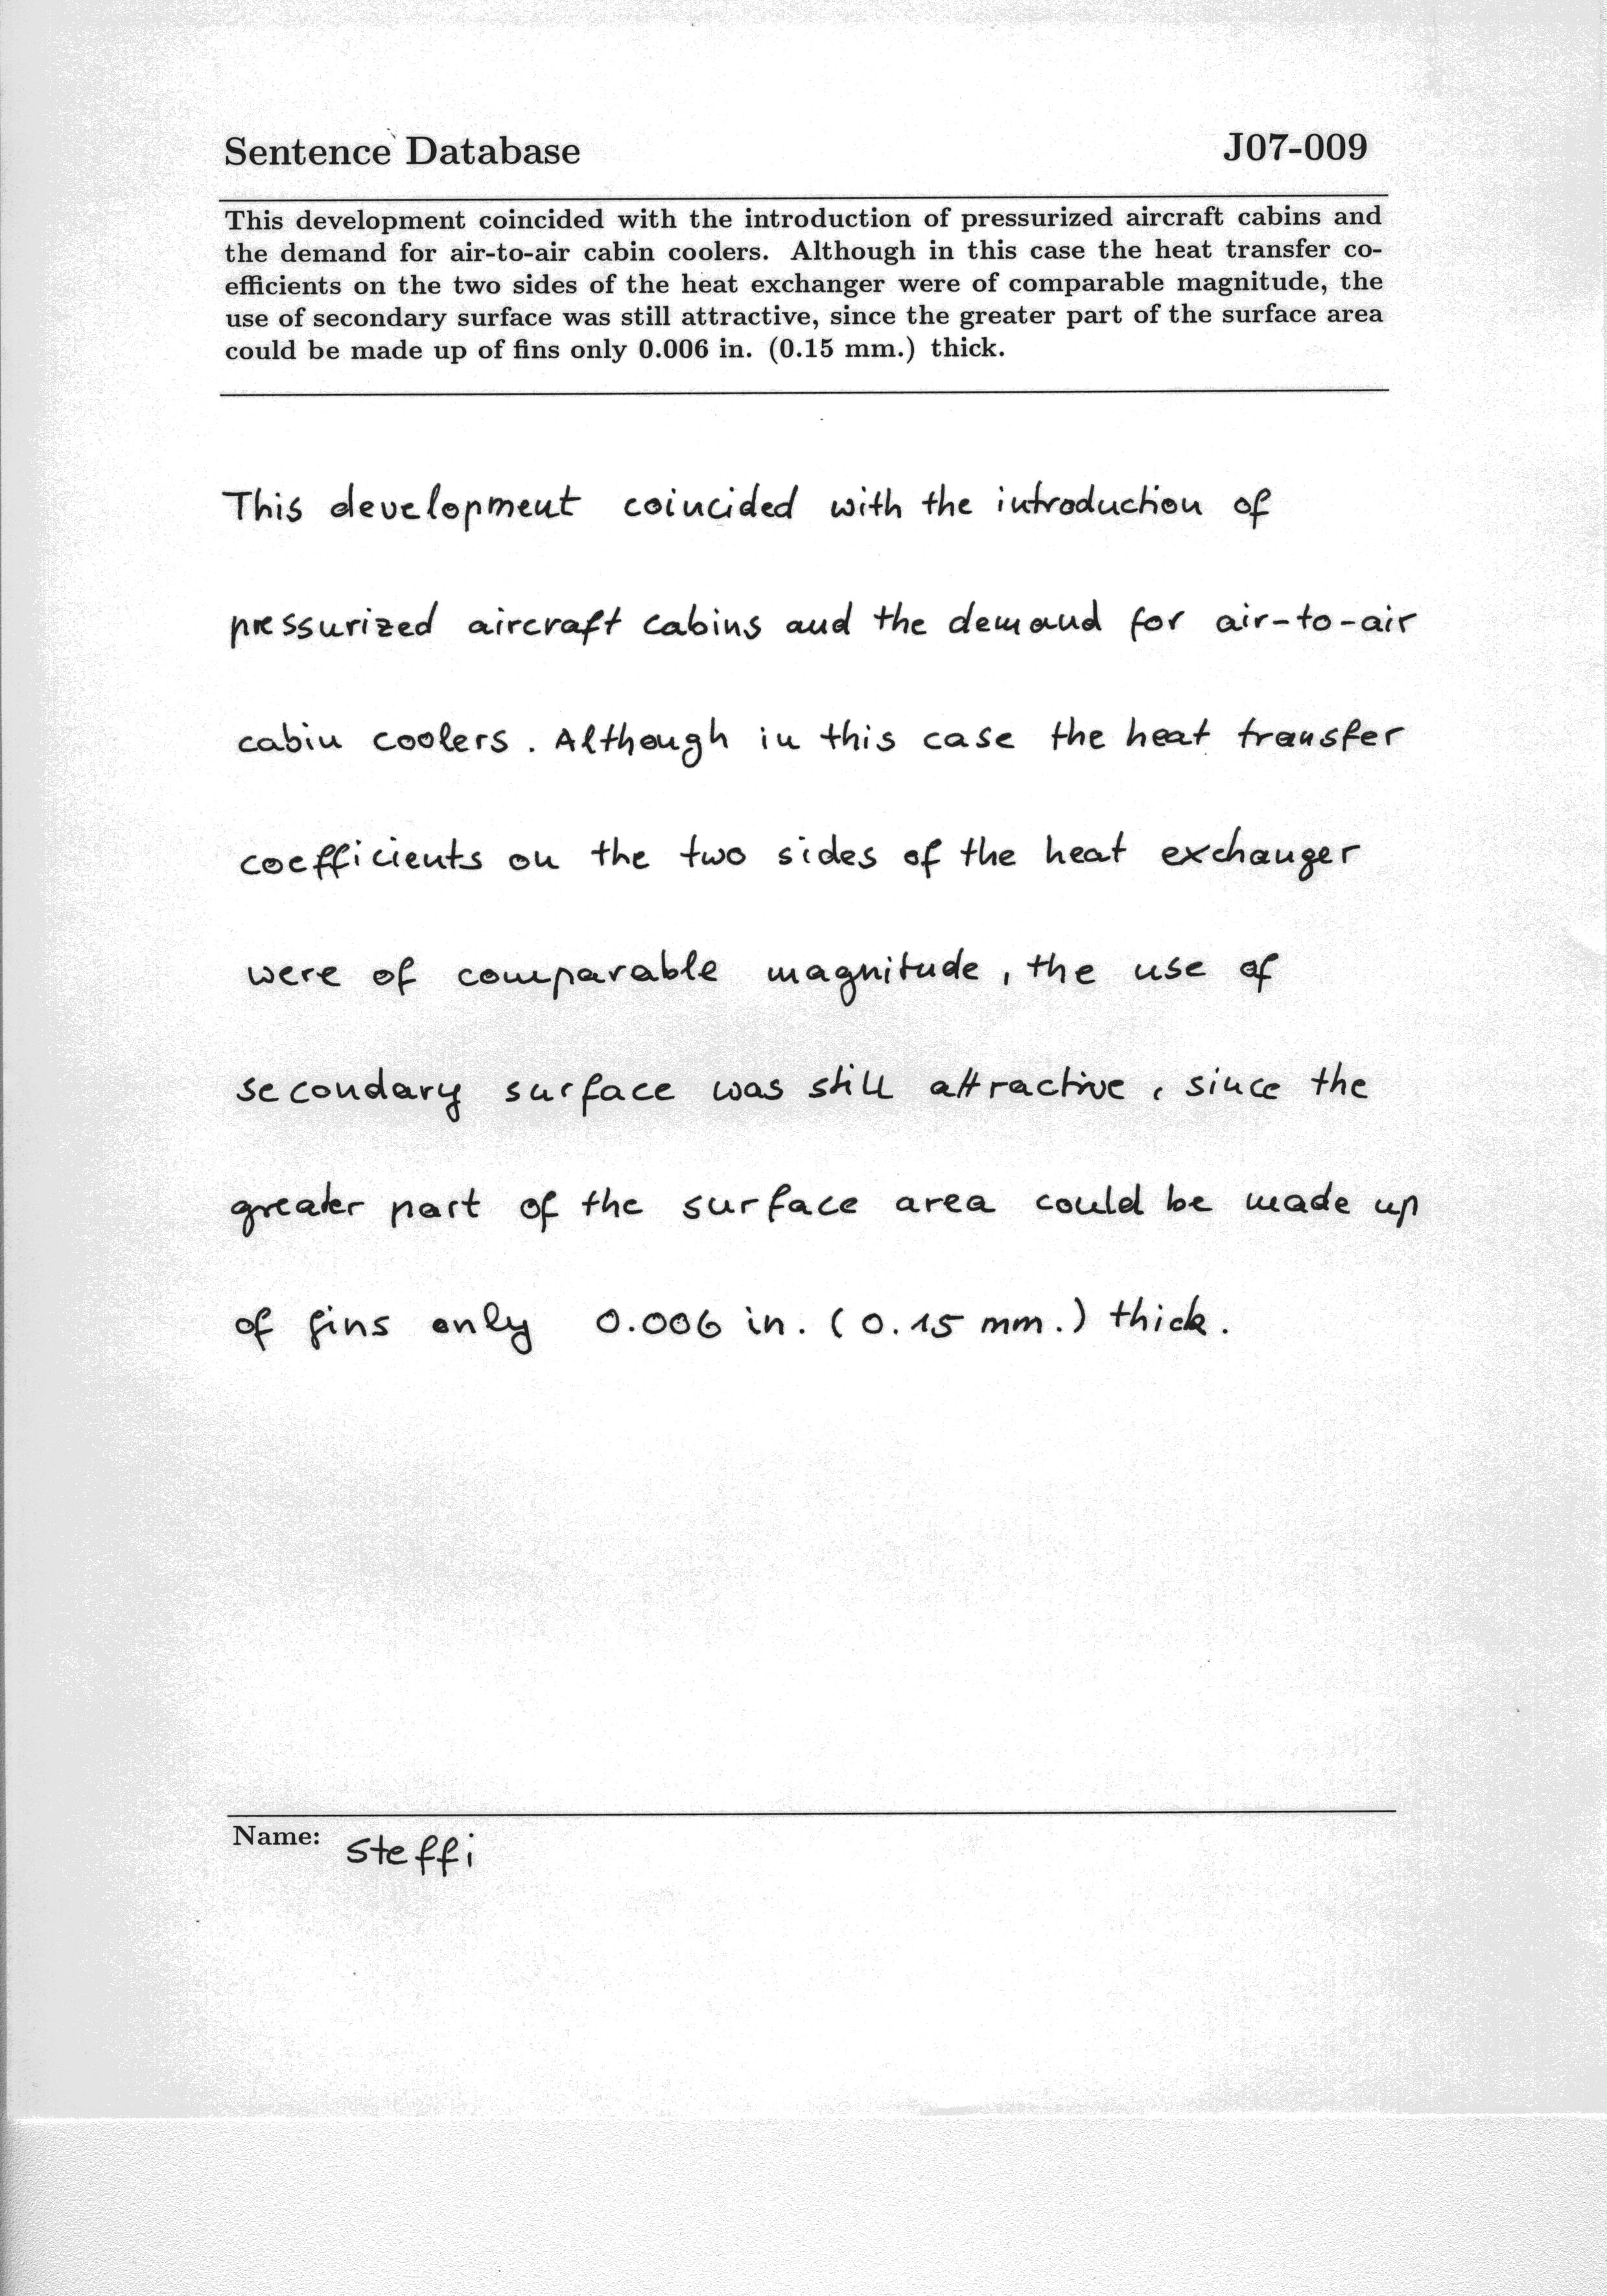 Sentence Database J07-009
This development coincided with the introduction of pressurized aircraft cabins and
the demand for air-to-air cabin coolers. Although in this case the heat transfer co-
efficients on the two sides of the heat exchanger were of comparable magnitude, the
use of secondary surface was still attractive, since the greater part of the surface area
could be made up of fins only 0.006 in. (0.15 mm.) thick.
This development coincided with the introduction of
pressurized aircraft cabins and the demand for air-to-air
cabin coolers. Although in this case the heat transfer
coefficients on the two sides of the heat exchanger
were of comparable magnitude, the use of
secondary surface was still attractive, since the
greater part of the surface area could be made up
of fins only 0.006 in. (0.15 mm.) thick.
Name: Steffi